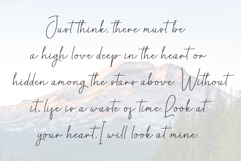 Just think, there must be
a high love deep in the heart or
hidden among the stars above. Without
it, life is a waste of time. Look at
your heart. I will look at mine.